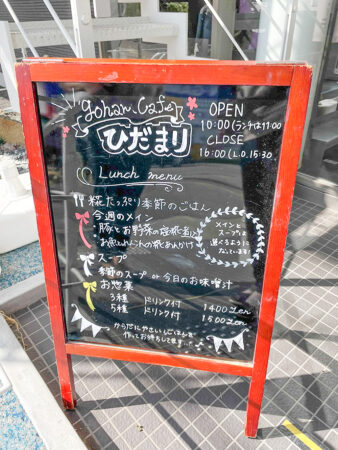 gohan Cafe
ひだまり
OPEN
10:00 (ランチは11:00
CLOSE
16:00 (L.O.15:30
Lunch menu
糀たっぷり季節のごはん
今週のメイン
・豚とお野菜の
・お魚
メインと
スープも
選べるように
なっています!
スープ
季節のスープ or 今日のお味噌汁
お惣菜
3種 ドリンク付 1400yen
5種 ドリンク付 1500yen
からだにやさしいごはんを
作ってお待ちしてます